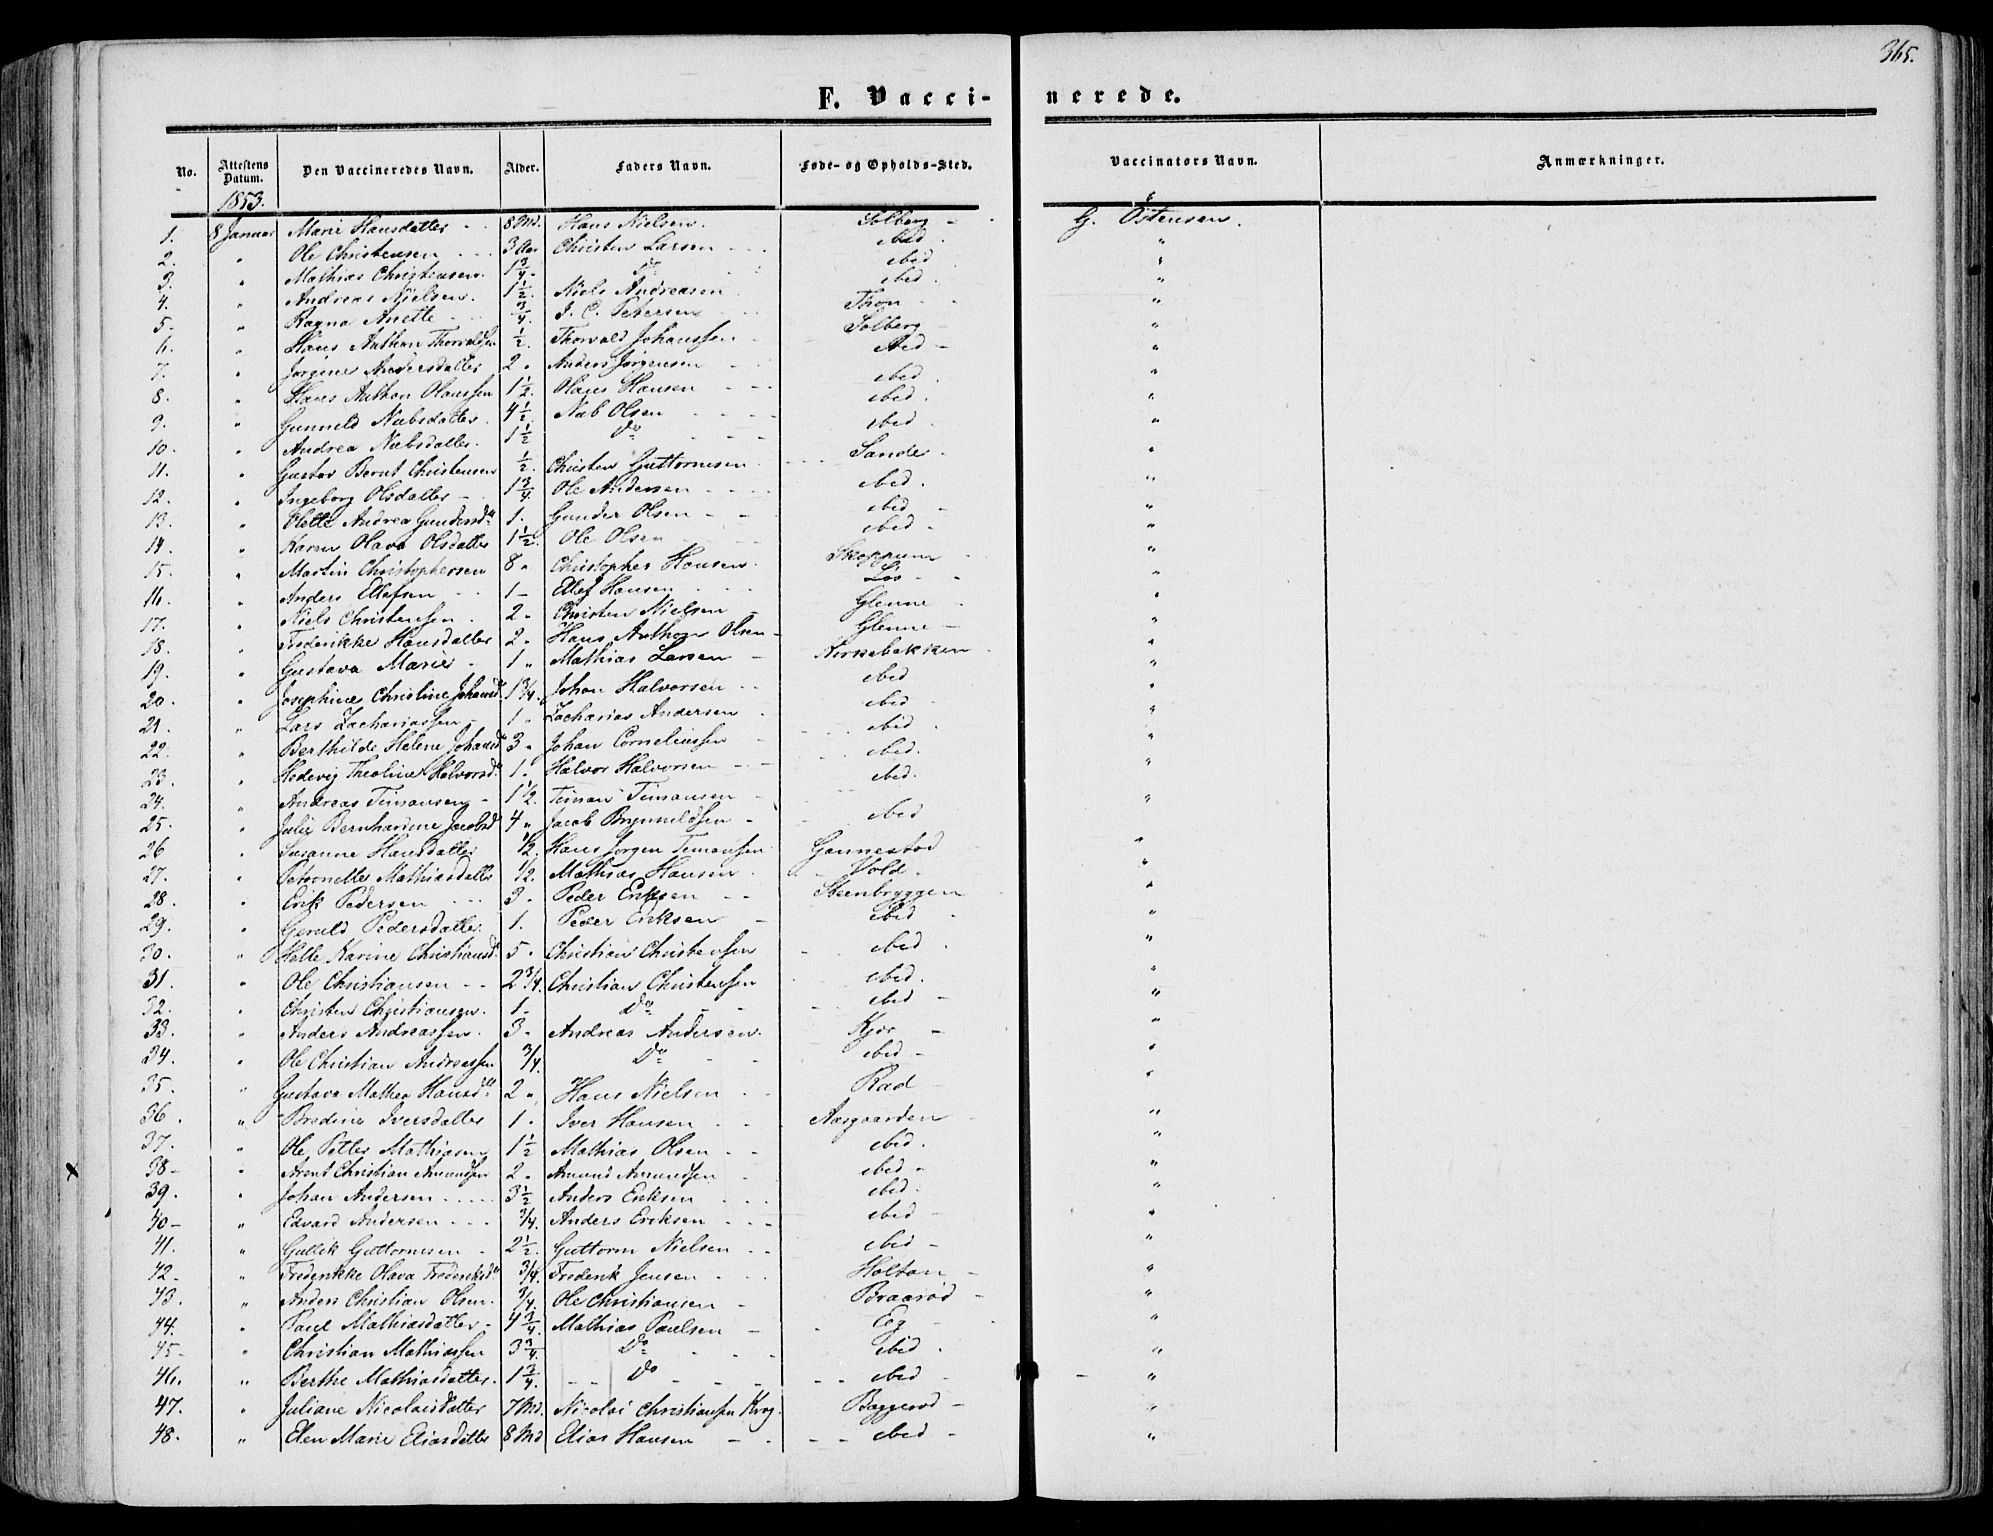 365.
F. Vacci- nerede.
No. Attestens Datum. Den Vaccineredes Navn. Alder. Faders Navn. Føde- og Opholds-Sted. Vaccinators Navn. Anmærkninger.
1853.
1. 8 Januar Marie Hansdatter 8 Md. Hans Nielsen. Solberg G. Østensen.
2. " Ole Christensen 3 Aar Christen Larsen ibid. "
3. " Mathias Christensen. 1 3/4 Do ibid "
4. " Andreas Nielsen. 1 1/2. Niels Andreasen ibid. "
5. " Ragna Anette 3/4. J. C. Petersen Thon "
6. " Hans Anthon Thorvaldsen 1/2. Thorvald Johanssen Solberg "
7. " Jørgine Andersdatter 2 " Anders Jørgensen ibid "
8. " Hans Anthon Olaussen 1 1/2. Olaus Hansen ibid. "
9. " Gunnild Nubsdatter 4 1/2. Nub Olsen ibid. "
10. " Andrea Nubsdatter. 1 1/2 Do ibid. "
11. " Gustav Bernt Christensen 1/2. Christen Guttormsen Sande. "
12. " Ingeborg Olsdatter 1 3/4. Ole Andersen ibid. "
13. " Helle Andrea Gundersd. 1. Gunder Olsen ibid "
14. " Karen Olava Olsdatter 1 1/2. Ole Olsen ibid "
15. " Martin Christophersen 8 " Christopher Hansen. Skoppum "
16. " Anders Ellefsen 1 Ellef Hansen "
17. " Niels Christenssen. 2 " Christen Nielsen Glenne "
18. " Frederikke Hansdatter 2. Hans Anthon Olsen Glenne "
19. " Gustava Marie 1 " Mathias Larsen "
20. " Josephine Christine Johansd. 1 3/4. Johan Halvorsen ibid "
21. " Lars Zachariassen 1 " Zacharias Andersen ibid "
22. " Berthilde Helene Johansd. 3 " Johan Corneliussen ibid. "
23. " Hedevig Theoline Halvorsd. 1. Halvor Halvorsen ibid. "
24. " Andreas Timansen 1 1/2. Timan Timansen ibid. "
25. " Julie Bernhardine Jacobsd 4 " Jacob Brynnildsen ibid "
26 " Susanne Hansdatter 1/2. Hans Jørgen Timanssen Gannestad "
27. " Petronelle Mathiasdatter 1/2. Mathias Hansen. Vold. "
28. " Erik Pedersen 3. Peder Eriksen Steenbryggen "
29. " Gerald Pedersdatter. 1. Peder Eriksen ibid "
30. " Helle Karine Christiansd. 5. Christian Christenssen ibid. "
31. " Ole Christiansen 2 3/4. Christian Christenssen ibid. "
32. " Christen Christiansen. 1 Do ibid "
33. " Anders Andreassen. 3. Andreas Andersen. Kjær "
34. " Ole Christian Andreassen 3/4. Do ibid "
35. " Gustava Mathea Hansd. 2 " Hans Nielsen Rad "
36. " Bredine Iversdatter 1. Iver Hansen Aasgaarden "
37. " Ole Petter Mathiasen 1 1/2 Mathias Olsen ibid. "
38 " Arent Christian Amundsen 2 " Amund Amundsen ibid "
39. " Johan Andersen 3 1/2 Anders Eriksen ibid. "
40 " Edvard Andersen 3/4. Anders Eriksen ibid "
41. " Gullik Guttormsen 2 1/2. Guttorm Nielsen ibid "
42 " Frederikke Olava Frederiksd. 3/4. Frederik Jensen Holtan "
43. " Anders Christian Olsen. 3/4. Ole Christiansen Braarød "
44. " Paul Mathiasdatter 4 3/4. Mathias Paulsen Eeg "
45 " Christian Mathiassen 3 3/4. Do ibid. "
46. " Berthe Mathiasdatter. 1 3/4. Do ibid "
47. " Juliane Nicolaisdatter 7 Md. Nicolai Christiansen Krog. Baggerød "
48. " Elen Marie Eliasdatter 8 Md Elias Hansen ibid "